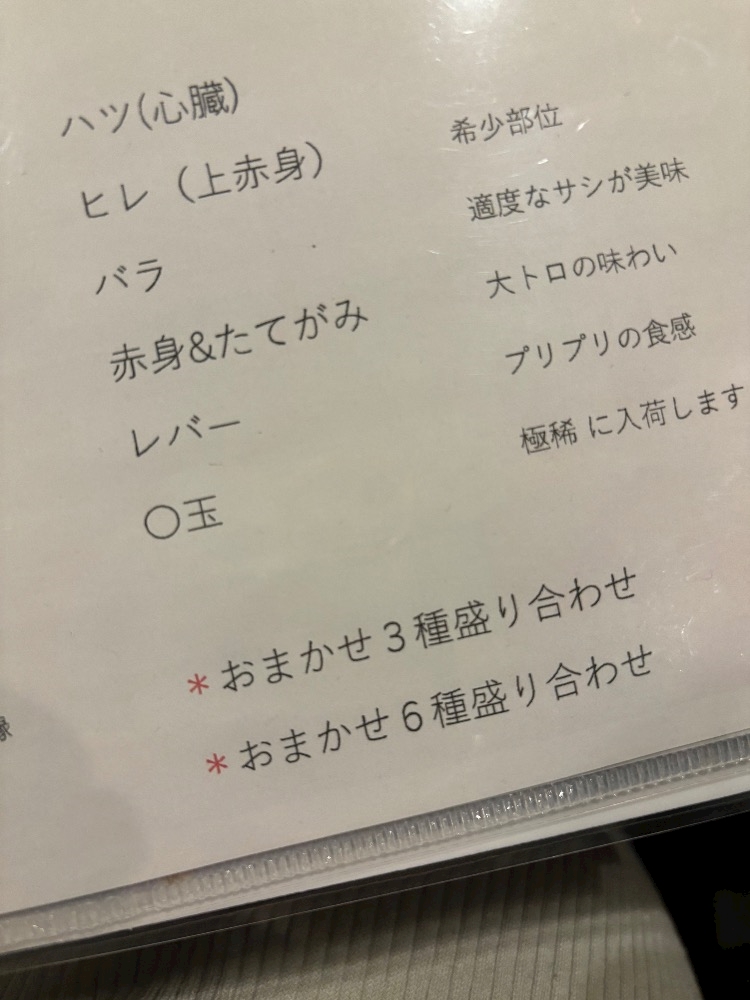 ハツ(心臓)
ヒレ（上赤身） 希少部位
バラ 適度なサシが美味
赤身&たてがみ 大トロの味わい
レバー プリプリの食感
〇玉 極稀 に入荷します
*おまかせ３種盛り合わせ
*おまかせ６種盛り合わせ